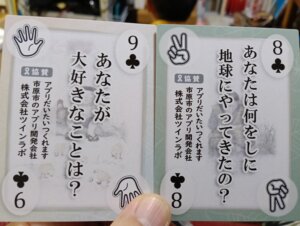 9
協賛
あなたが
大好きなことは？
アプリだいたいつくれます
市原市のアプリ開発会社
株式会社ツインラボ
9
8
協賛
あなたは何をしに
地球にやってきたの？
アプリだいたいつくれます
市原市のアプリ開発会社
株式会社ツインラボ
8